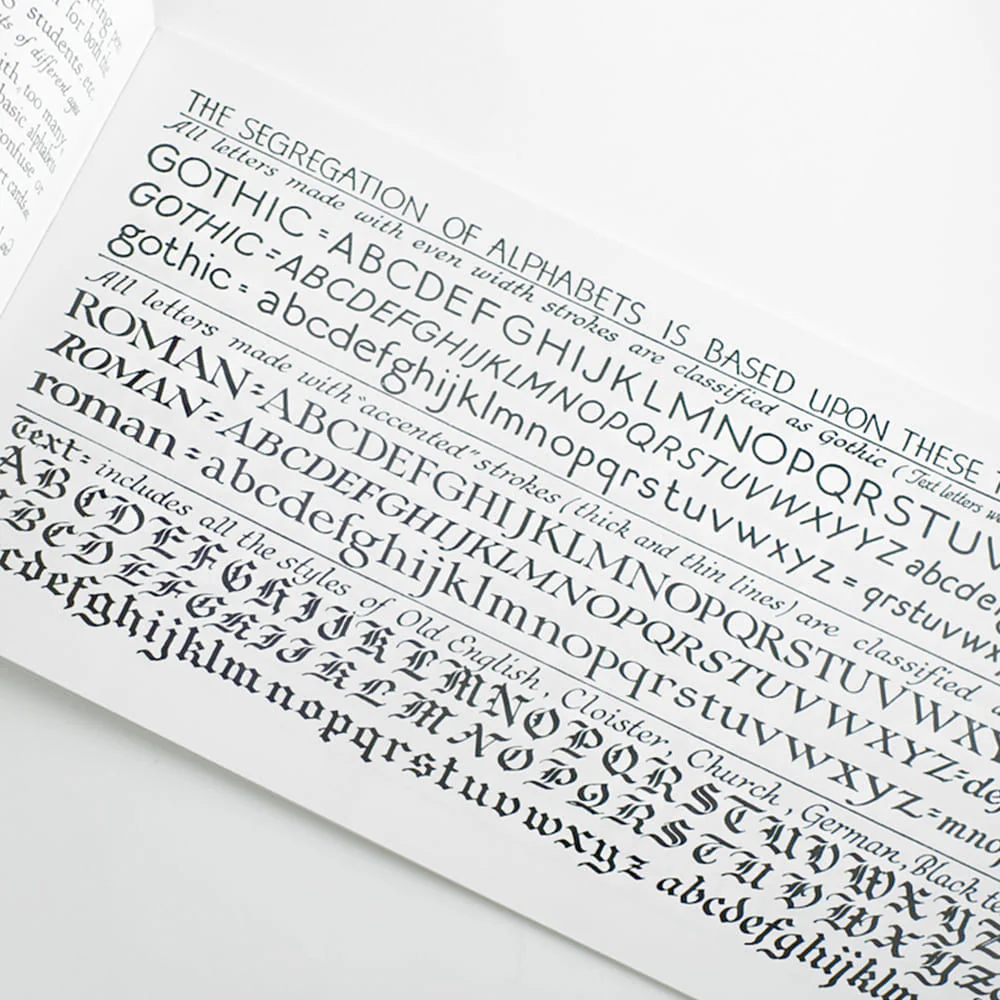 for both the
students, etc.
of different
ith, too many,
basic alphabets
confuse or
THE SEGREGATION OF ALPHABETS IS BASED UPON THESE
All letters made with even width strokes are classified as Gothic (Text letters
GOTHIC = ABCDEFGHIJKLMNOPQRSTUV
GOTHIC = ABCDEFGHIJKLMNOPQRSTUVWXYYZ abcde
gothic = abcdefghijklmnopqrstuvwxyz = qrstuvwx
All letters made with "accented" strokes (thick and thin lines) are classified
ROMAN = ABCDEFGHIJKLMNOPQRSTUVWXY
ROMAN = ABCDEFGHIJKLMNOPQRSTUVWXYZ = de
roman = abcdefghijklmnopqrstuvwxyz = mno
Text = includes all the styles of Old English, Cloister, Church, German, Black te
ABCDEFGHIJKLMNOPQRSTUVWXYZ
BCDEFGHIJKLMNOPQRSTUVWXYZ
cdefghijklmnopqrstuvwxyz abcdefghijklm